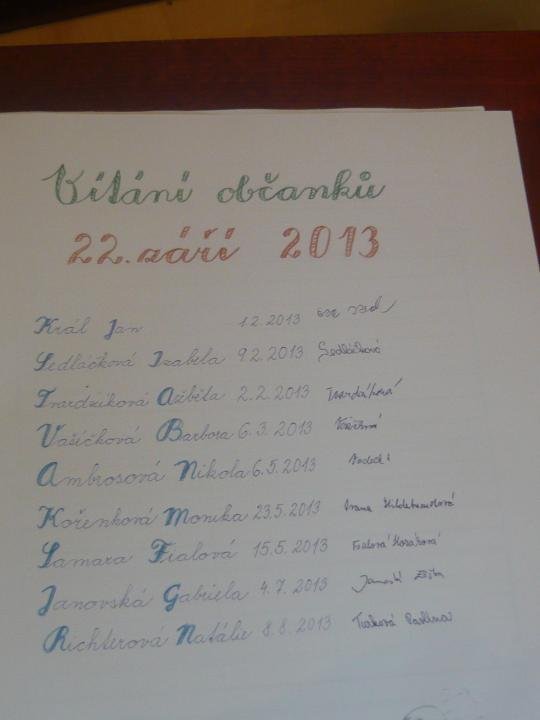 Vítání občanků
22. září 2013
Král Jan 1.2.2013
Sedláčková Izabela 9.2.2013 Sedláčková
Tvardzíková Alžběta 2.2.2013
Vašíčková Barbora 6.3.2013
Ambrosová Nikola 6.5.2013
Kořenková Monika 23.5.2013 Hildebrandová
Samara Fialová 15.5.2013 Fialová Horáková
Janovská Gabriela 4.7.2013
Richterová Natálie 8.8.2013 Turková Pavlína